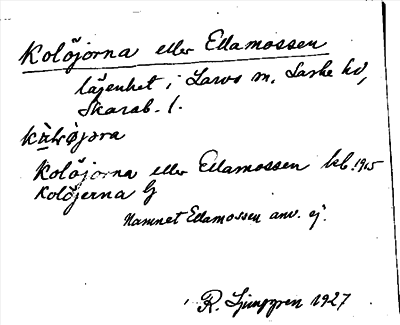 Kolöjorna eller Ellamossen
lägenhet i Larvs sn, Laske hd,
Skarab. l.
Kolöjorna eller Ellamossen kb. 1915
Kolöjerna G
Namnet Ellamossen anv. ej.
R. Ljunggren 1927